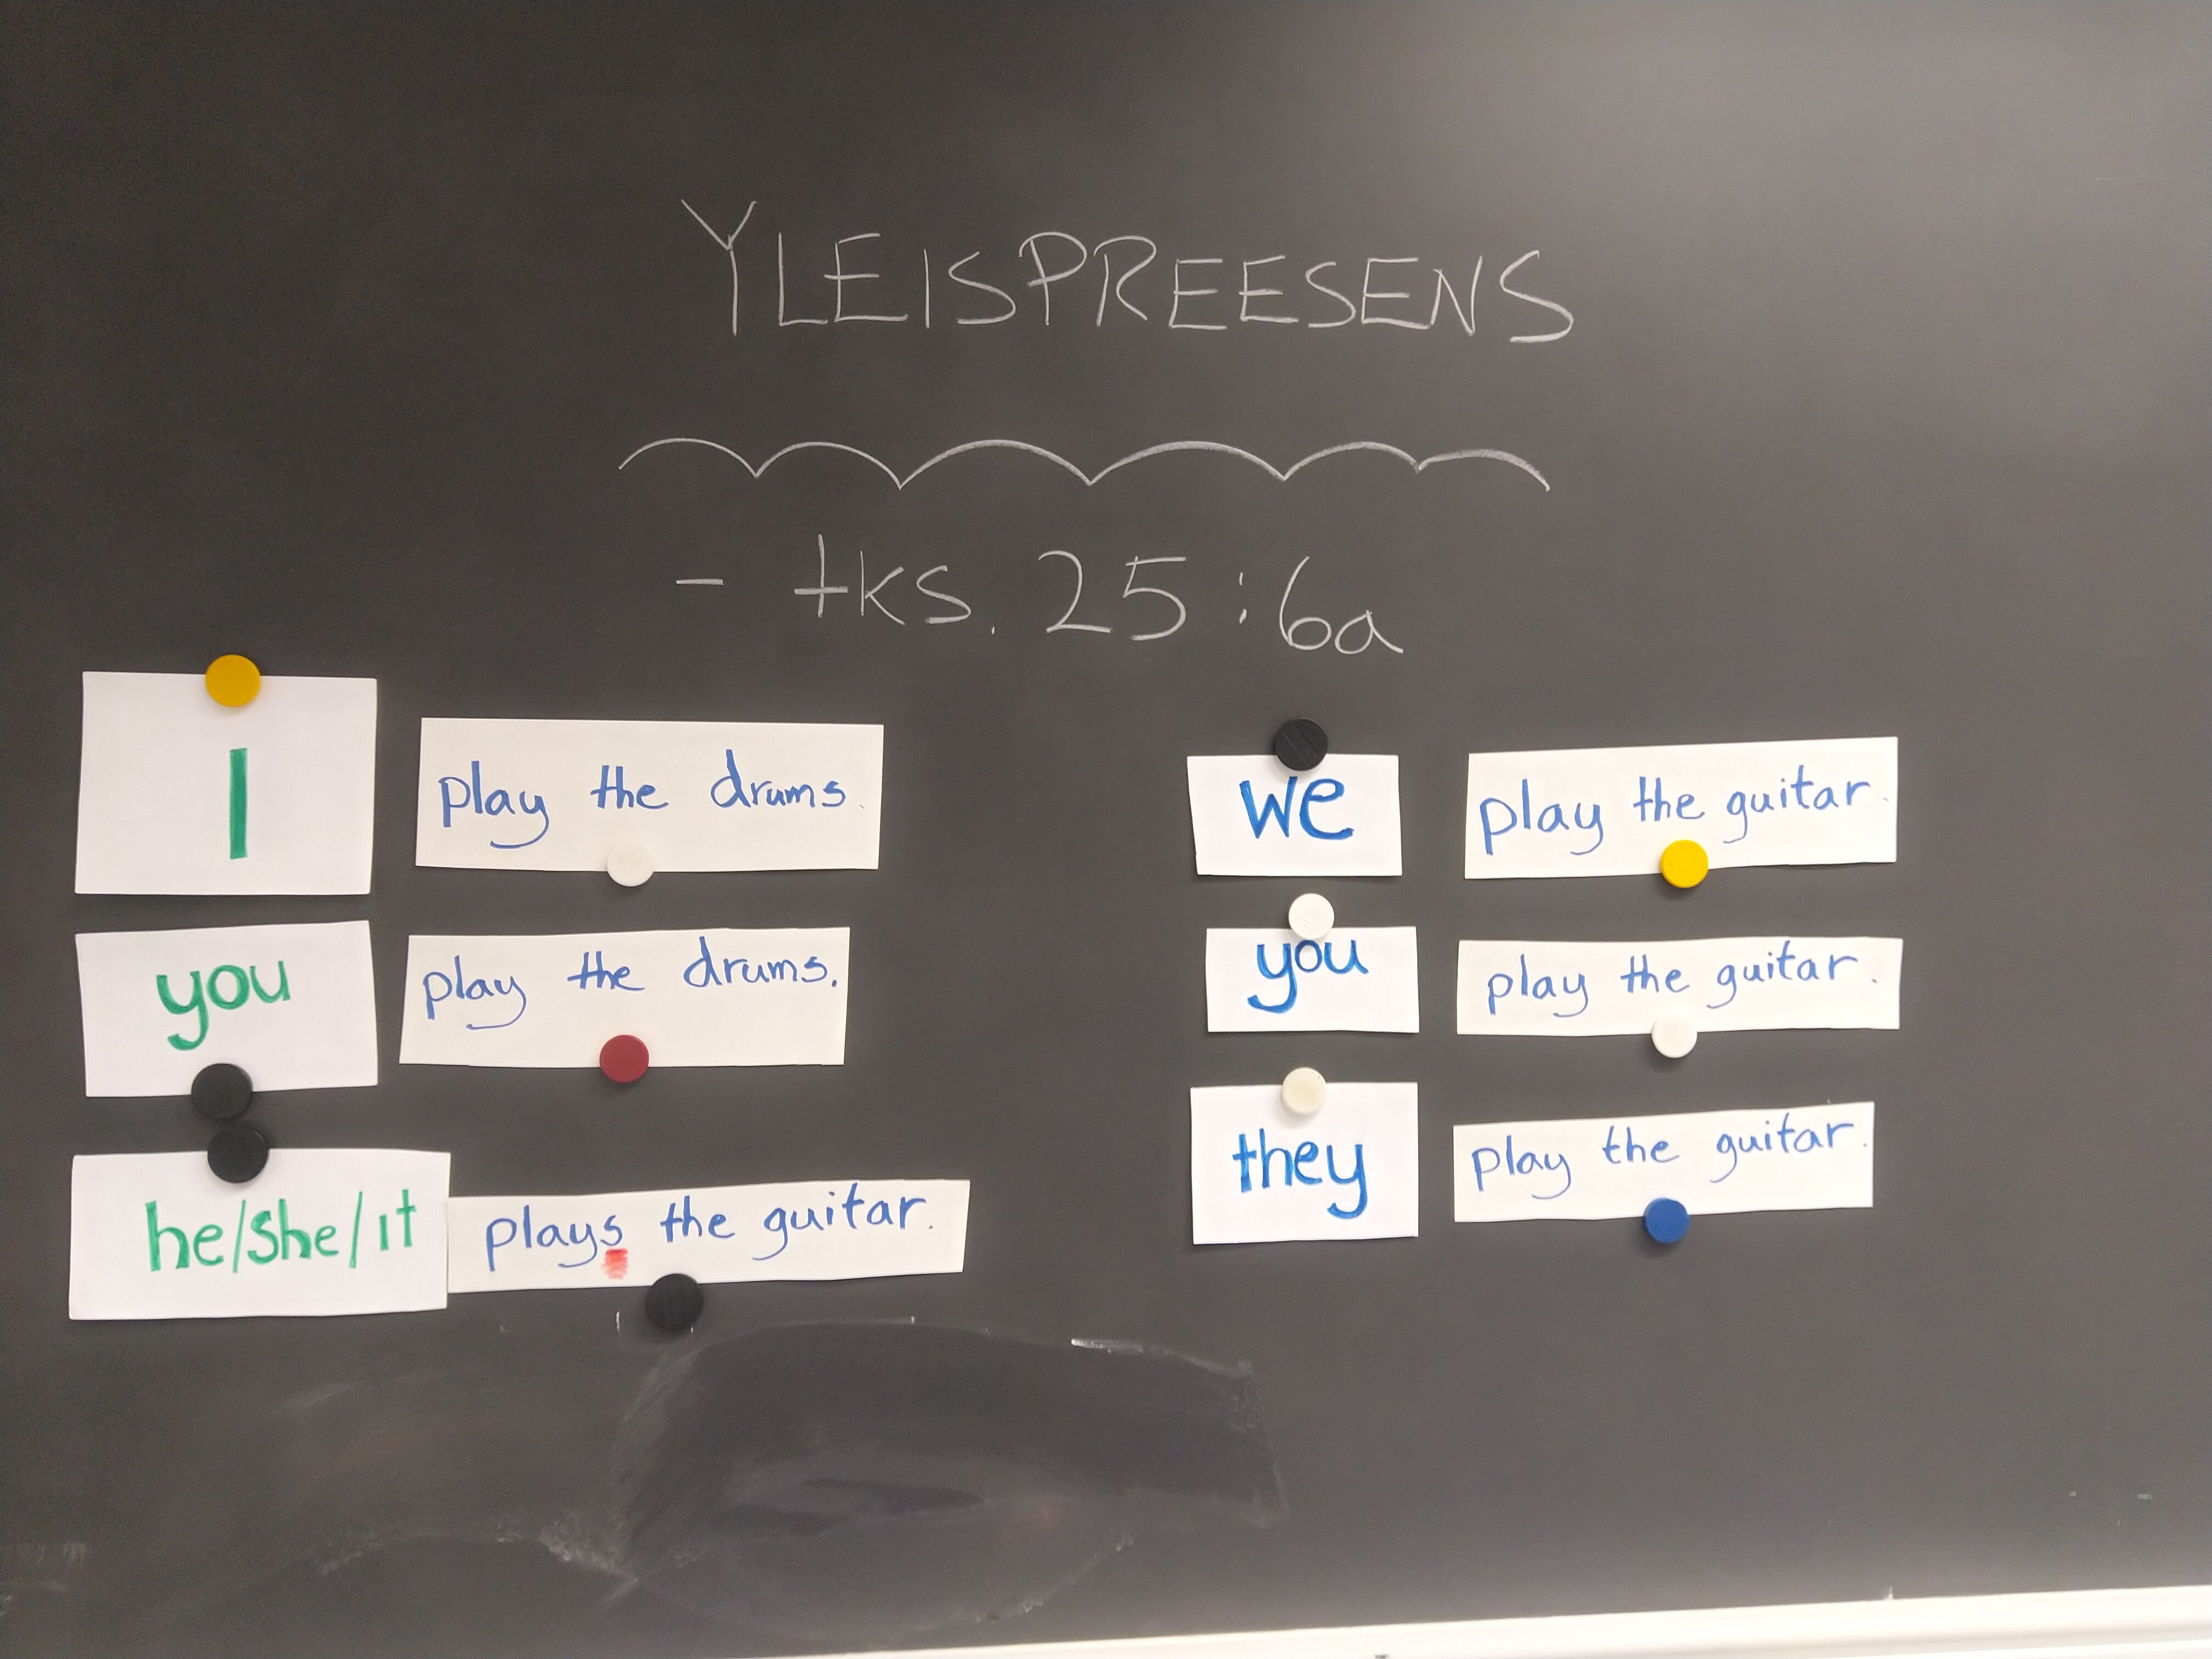 YLEISPREESENS
- tks. 25:6a
I play the drums.
you play the drums.
he/she/it plays the guitar.
we play the guitar.
you play the guitar.
they play the guitar.